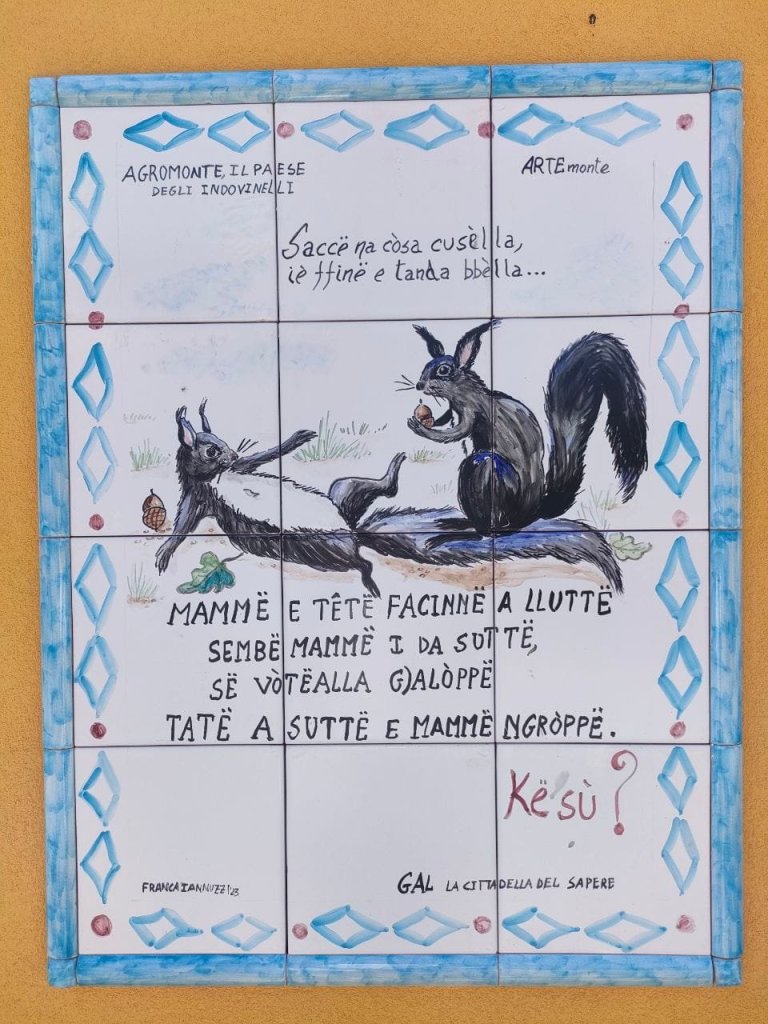 AGROMONTE, IL PAESE
DEGLI INDOVINELLI
ARTEmonte
Saccë na còsa cusèlla,
iè ffinë e tanda bbèlla...
MAMMË E TÊTË FACINNË A LLUTTË
SEMBË MAMMË I DA SUTTË,
SË VÒTËALLA GALÒPPË
TATË A SUTTË E MAMMË NGRÒPPË.
Kë sù?
FRANCA IANNUZZI '23
GAL LA CITTADELLA DEL SAPERE